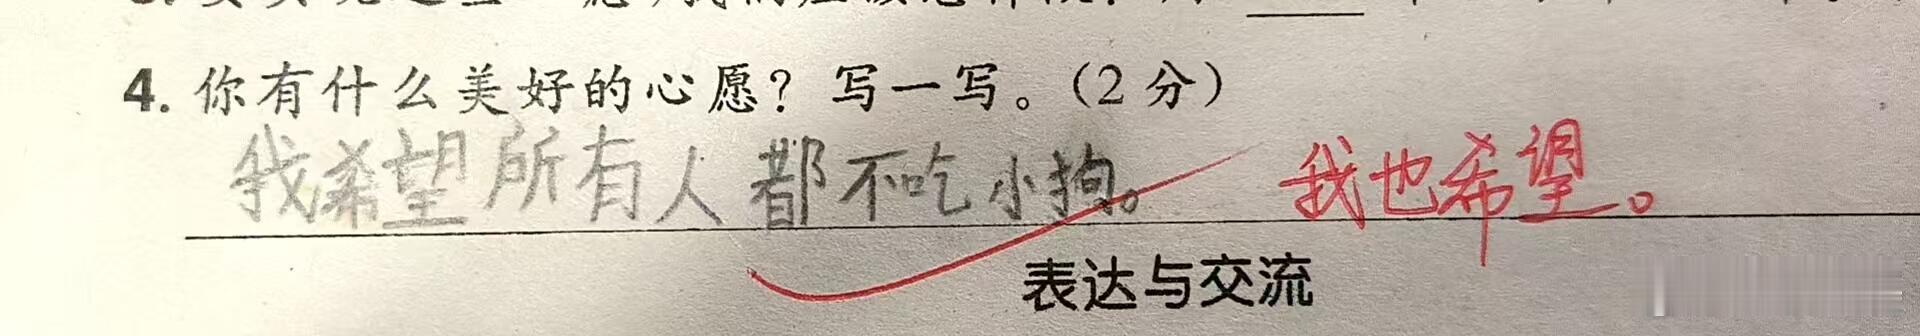 4. 你有什么美好的心愿？写一写。（2 分）
我希望所有人都不吃小狗。 我也希望。
表达与交流